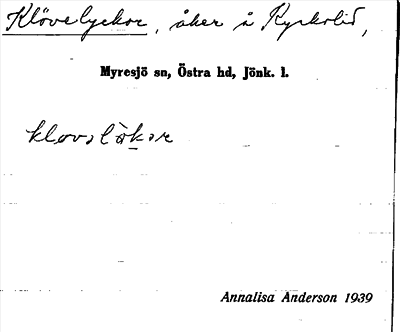 Klövelyckor, åker å Kyrkolid,
Myresjö sn, Östra hd, Jönk. l.
kløvəlỳkər
Annalisa Anderson 1939